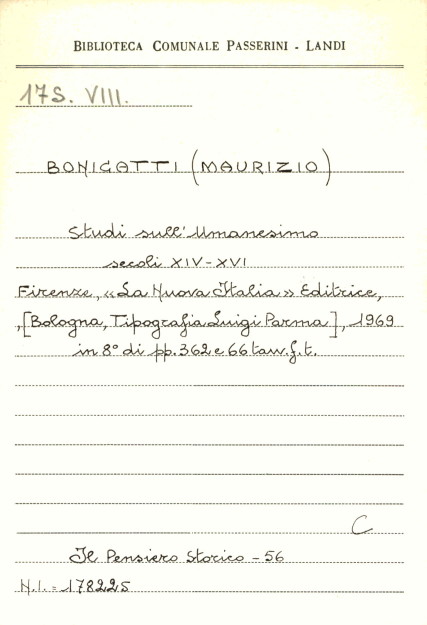 BIBLIOTECA COMUNALE PASSERINI - LANDI
17S. VIII.
BONIGATTI (MAURIZIO)
Studi sull'Umanesimo
secoli XIV-XVI
Firenze, «La Nuova Italia» Editrice,
,[Bologna, Tipografia Luigi Parma], 1969
in 8° di pp. 362 e 66 tav. f. t.
C
Il Pensiero Storico - 56
N.I. = 178225